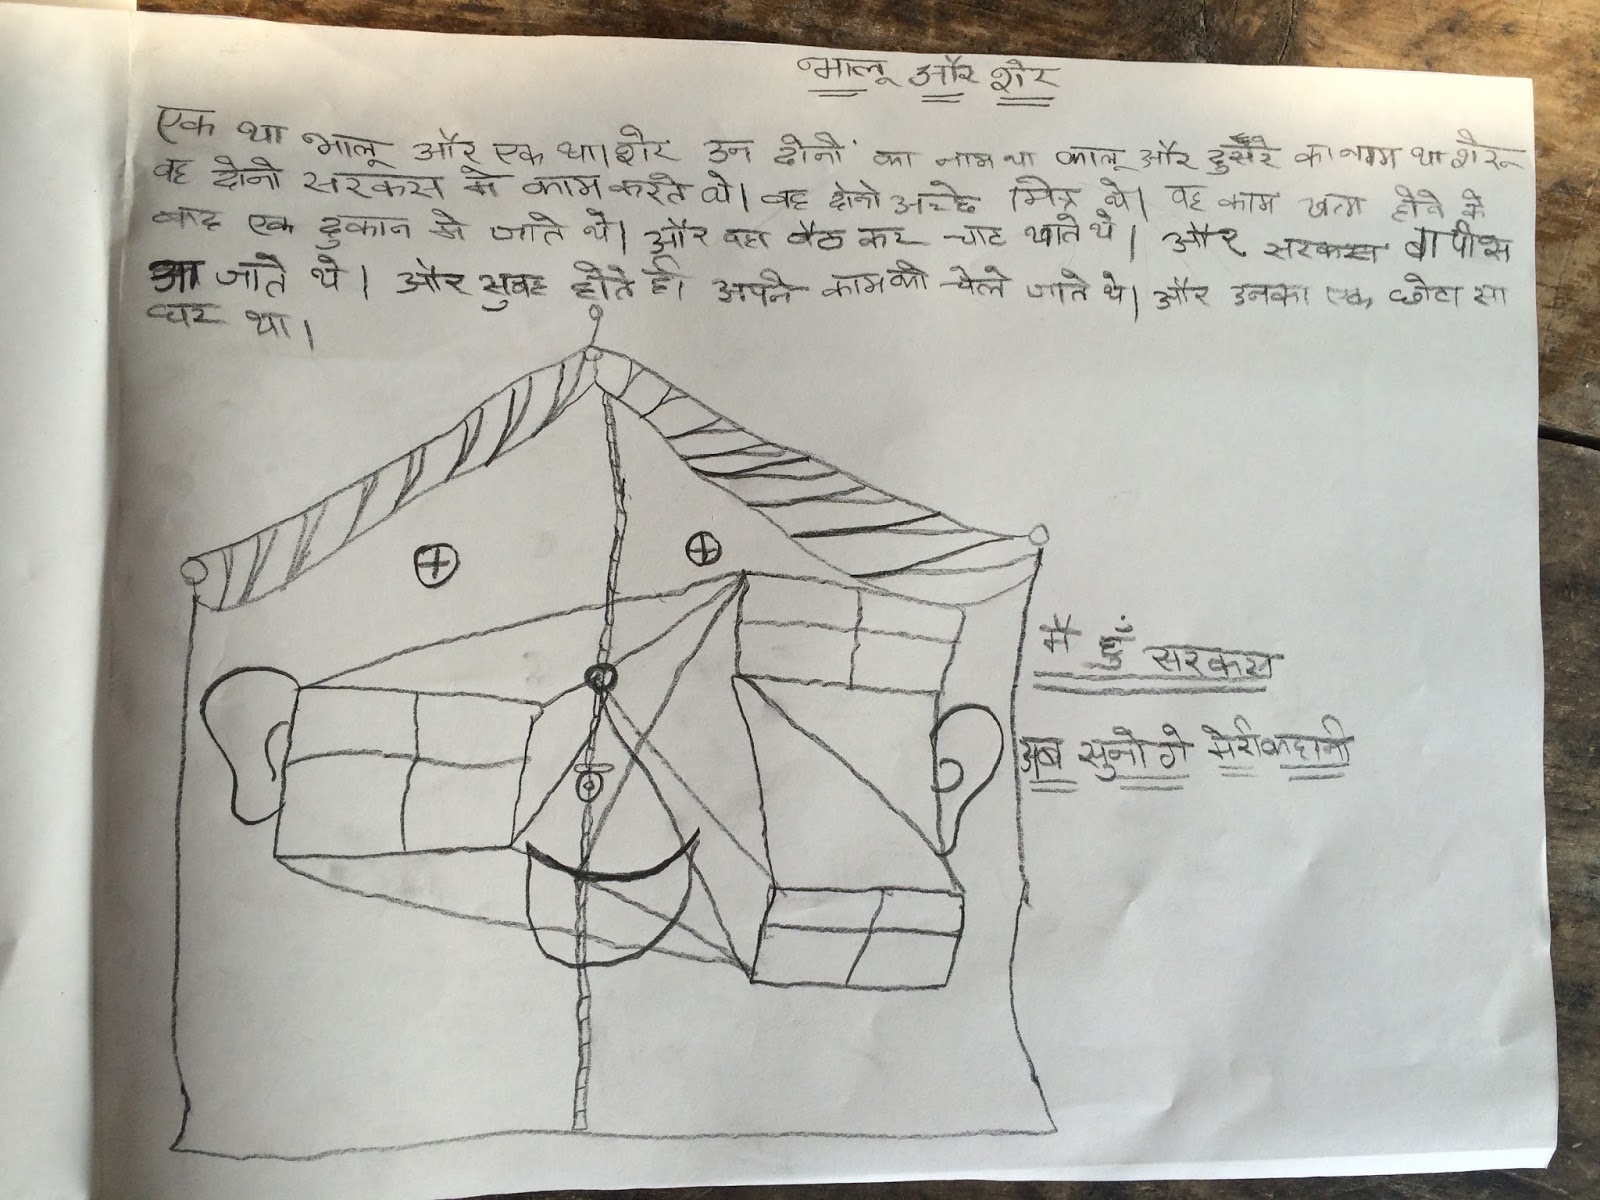 भालू और शेर
एक था भालू और एक था। शेर उन दोनों का नाम था कालू और दुसरे का नाम था शेरू
वह दोनो सरकस मे काम करते थे। वह दोनो अच्छे मित्र थे। वह काम खत्म होने के
बाद एक दुकान मे जाते थे। और वहा बैठ कर चाट खाते थे। और सरकस वापीस
आ जाते थे। और सुबह होते ही अपने काम को चेले जाते थे। और उनका एक छोटा सा
घर था।
मै हुँ सरकस
अब सुनोगे मेरी कहानी